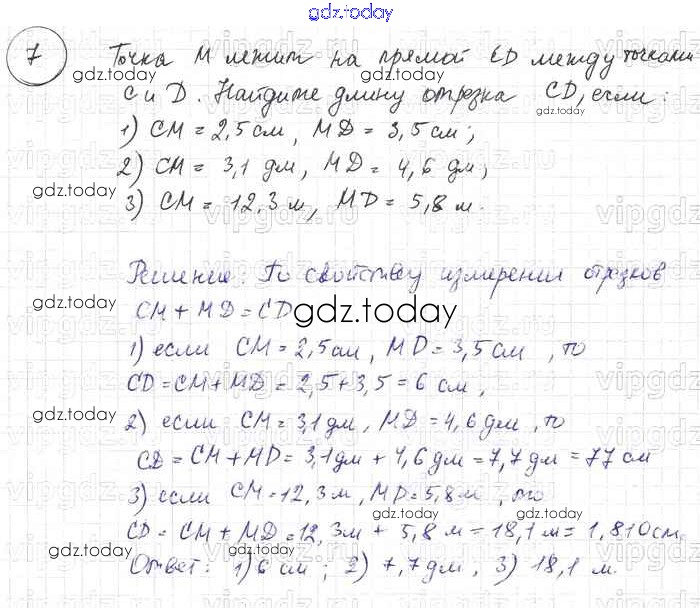 gdz.today
7 Точка М лежит на прямой CD между точками
С и D. Найдите длину отрезка CD, если:
1) CM = 2,5 см, MD = 3,5 см;
2) CM = 3,1 дм, MD = 4,6 дм;
3) CM = 12,3 м, MD = 5,8 м.
Решение: По свойству измерения отрезков
CM + MD = CD
1) если CM = 2,5 см, MD = 3,5 см, то
CD = CM + MD = 2,5 + 3,5 = 6 см,
2) если CM = 3,1 дм, MD = 4,6 дм, то
CD = CM + MD = 3,1 дм + 4,6 дм = 7,7 дм = 77 см
3) если CM = 12,3 м, MD = 5,8 м, то
CD = CM + MD = 12,3 м + 5,8 м = 18,1 м = 1,810 см.
Ответ: 1) 6 см; 2) 7,7 дм, 3) 18,1 м.